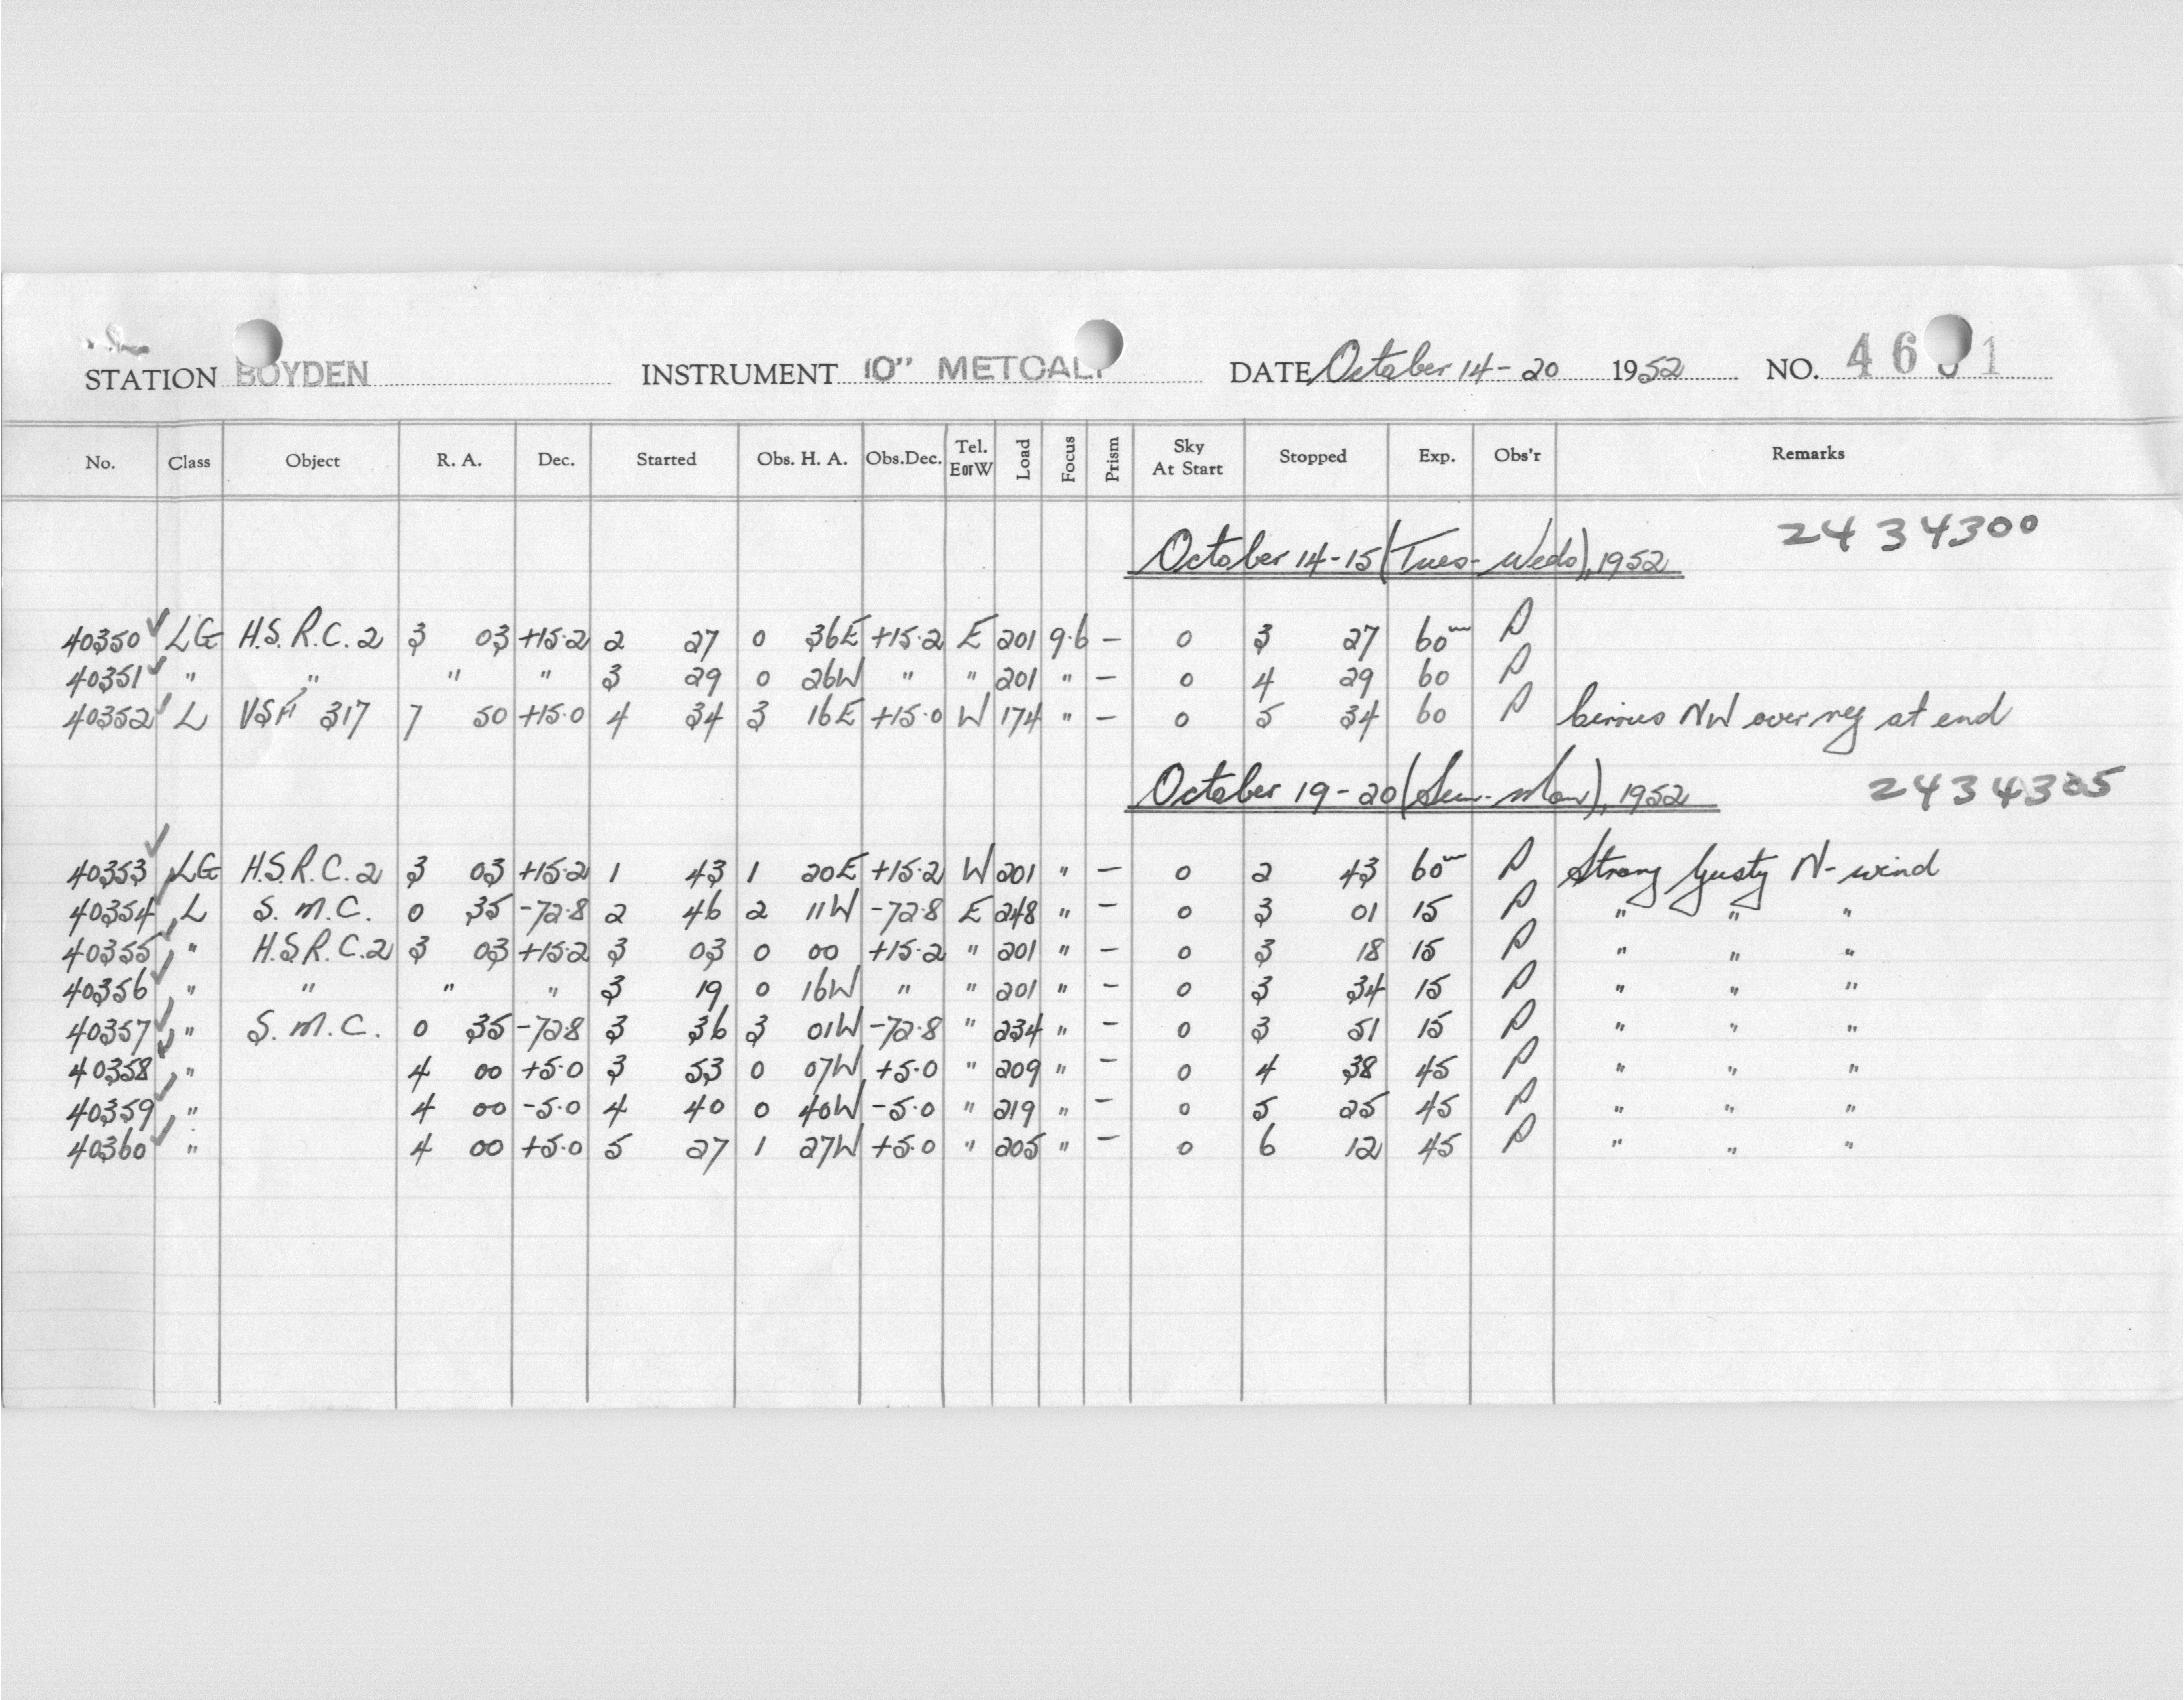 STATION BOYDEN INSTRUMENT 10" METCALF DATE October 14-20 1952 NO. 46 1
No. Class Object R. A. Dec. Started Obs. H. A. Obs.Dec. Tel. E or W Load Focus Prism Sky At Start Stopped Exp. Obs'r Remarks
October 14-15 (Tues-Weds), 1952 2434300
40350 ✓ LG H.S.R.C. 2 3 03 +15.2 2 27 0 36E +15.2 E 201 9.6 - 0 3 27 60m P
40351 ✓ " " " " 3 29 0 26W " " 201 " - 0 4 29 60 P
40352 ✓ L VSF 317 7 50 +15.0 4 34 3 16E +15.0 W 174 " - 0 5 34 60 P Cirrus NW over reg at end
October 19-20 (Sun-Mon), 1952 2434305
40353 ✓ LG H.S.R.C. 2 3 03 +15.2 1 43 1 20E +15.2 W 201 " - 0 2 43 60m P Strong Gusty N-wind
40354 ✓ L S.M.C. 0 35 -72.8 2 46 2 11W -72.8 E 248 " - 0 3 01 15 P " " "
40355 ✓ " H.S.R.C. 2 3 03 +15.2 3 03 0 00 +15.2 " 201 " - 0 3 18 15 P " " "
40356 ✓ " " " " 3 19 0 16W " " 201 " - 0 3 34 15 P " " "
40357 ✓ " S.M.C. 0 35 -72.8 3 36 3 01W -72.8 " 234 " - 0 3 51 15 P " " "
40358 ✓ " 4 00 +5.0 3 53 0 07W +5.0 " 209 " - 0 4 38 45 P " " "
40359 ✓ " 4 00 -5.0 4 40 0 40W -5.0 " 219 " - 0 5 25 45 P " " "
40360 ✓ " 4 00 +5.0 5 27 1 27W +5.0 " 205 " - 0 6 12 45 P " " "